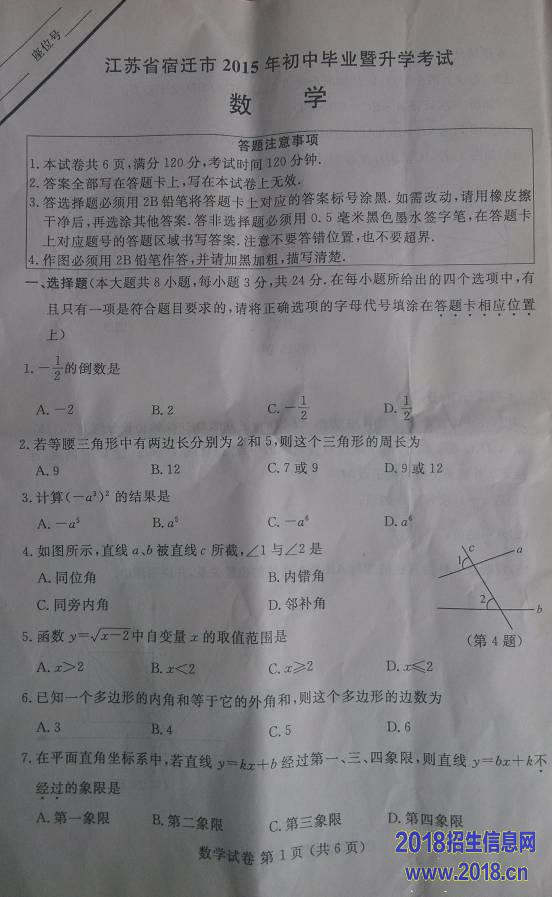 座位号
江苏省宿迁市2015年初中毕业暨升学考试
数 学
答题注意事项
1.本试卷共6页,满分120分,考试时间120分钟.
2.答案全部写在答题卡上,写在本试卷上无效.
3.答选择题必须用2B铅笔将答题卡上对应的答案标号涂黑.如需改动,请用橡皮擦
干净后,再选涂其他答案.答非选择题必须用0.5毫米黑色墨水签字笔,在答题卡
上对应题号的答题区域书写答案.注意不要答错位置,也不要超界.
4.作图必须用2B铅笔作答,并请加黑加粗,描写清楚.
一、选择题(本大题共8小题,每小题3分,共24分.在每小题所给出的四个选项中,有
且只有一项是符合题目要求的,请将正确选项的字母代号填涂在答题卡相应位置
上)
1.-1/2的倒数是
A.-2 B.2 C.-1/2 D.1/2
2.若等腰三角形中有两边长分别为2和5,则这个三角形的周长为
A.9 B.12 C.7或9 D.9或12
3.计算(-a³)²的结果是
A.-a⁵ B.a⁵ C.-a⁶ D.a⁶
4.如图所示,直线a、b被直线c所截,∠1与∠2是
A.同位角 B.内错角
C.同旁内角 D.邻补角
c
a
1
2
b
(第4题)
5.函数y=√x-2中自变量x的取值范围是
A.x>2 B.x<2 C.x⩾2 D.x⩽2
6.已知一个多边形的内角和等于它的外角和,则这个多边形的边数为
A.3 B.4 C.5 D.6
7.在平面直角坐标系中,若直线y=kx+b经过第一、三、四象限,则直线y=bx+k不
经过的象限是
A.第一象限 B.第二象限 C.第三象限 D.第四象限
数学试卷 第1页(共6页)
2018招生信息网
www.2018.cn